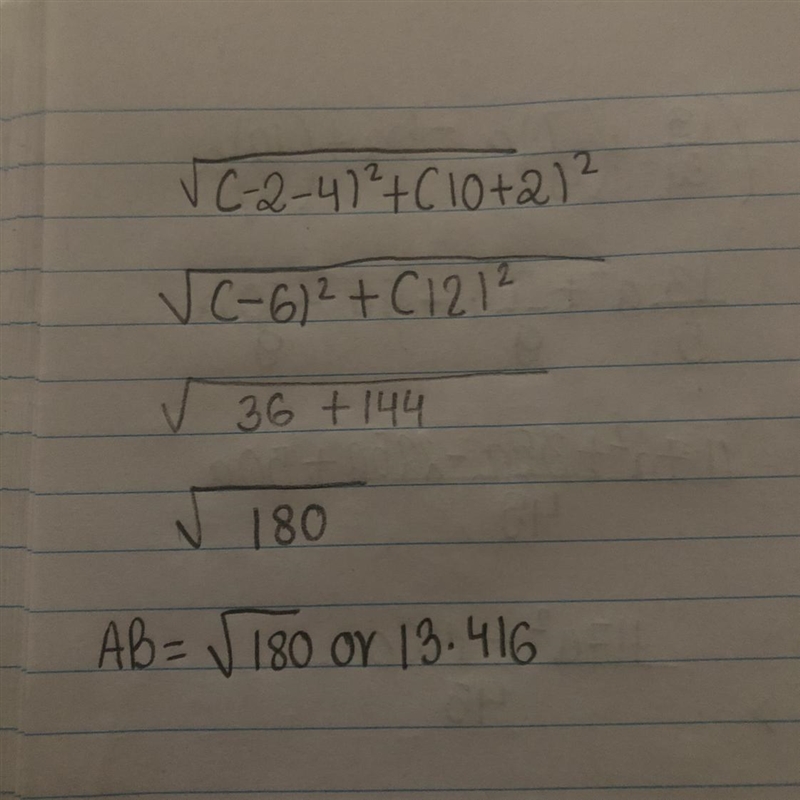 √(-2-4)²+(10+2)²
√(-6)²+(12)²
√36+144
√180
AB=√180 or 13.416